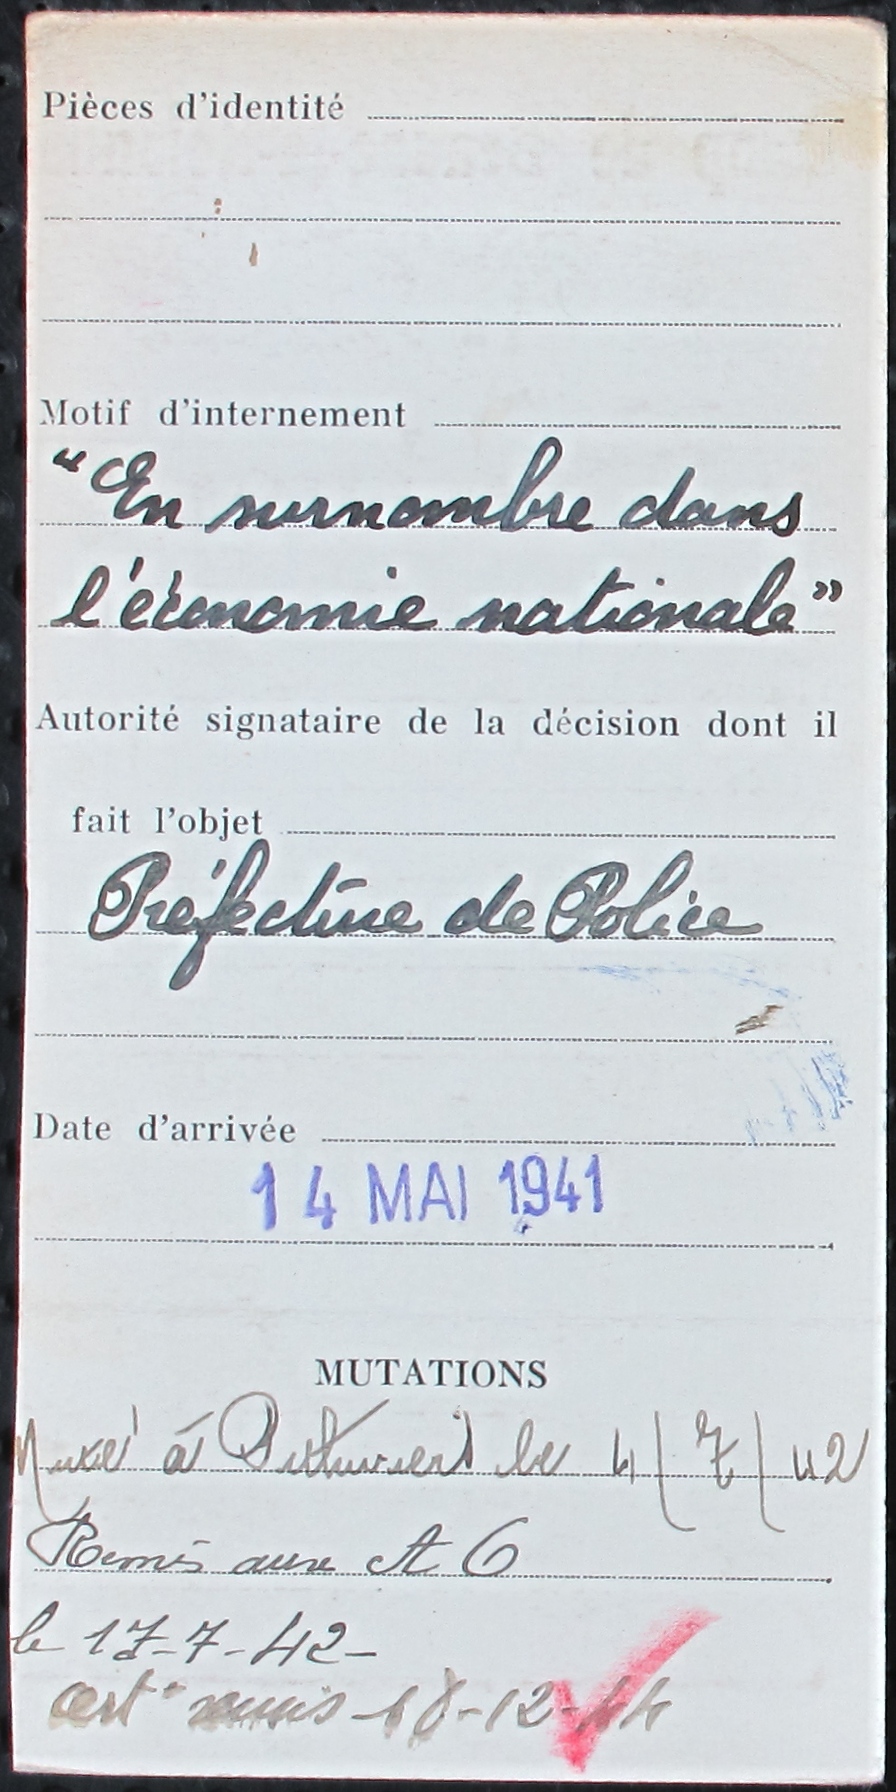 Pièces d'identité
Motif d'internement
“En surnombre dans
l'économie nationale”
Autorité signataire de la décision dont il
fait l'objet
Préfecture de Police
Date d'arrivée
14 MAI 1941
MUTATIONS
à Pithiviers le 4/7/42
Remis aux A
le 17-7-42-
cert° remis 18-12-44